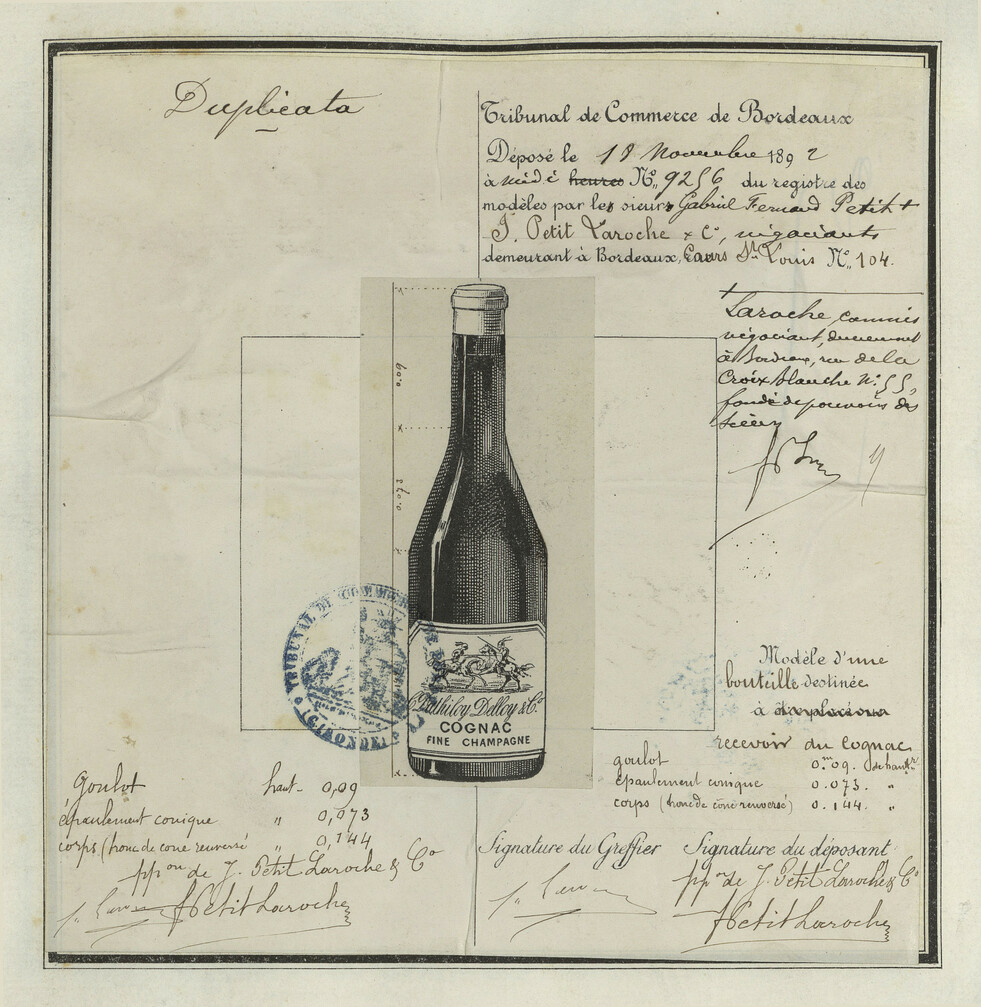 Duplicata
Tribunal de Commerce de Bordeaux
Déposé le 18 Novembre 1892
à midi heures N° 9256 du registre des
modèles par les sieurs Gabriel Fernand Petit +
J. Petit Laroche & Cie, négociants
demeurant à Bordeaux, Cours St Louis N° 104.
+ Laroche, commis
négociant, demeurant
à Bordeaux, rue de la
Croix blanche N° 55,
fondé de pouvoirs des
sieurs
0.09
0.073
TRIBUNAL DE COMMERCE DE
(GIRONDE)
& Co
COGNAC
FINE CHAMPAGNE
Modèle d'une
bouteille destinée
à
recevoir du Cognac
goulot 0m09. de hautr
épaulement conique 0.073. "
corps (tronc de cône renversé) 0.144. "
Goulot haut. 0,09
épaulement conique " 0,073
corps (tronc de cône renversé " 0,144
ppon de J. Petit Laroche & Co
Petit Laroche
Signature du Greffier
Signature du déposant
ppon de J. Petit Laroche & Co
Petit Laroche